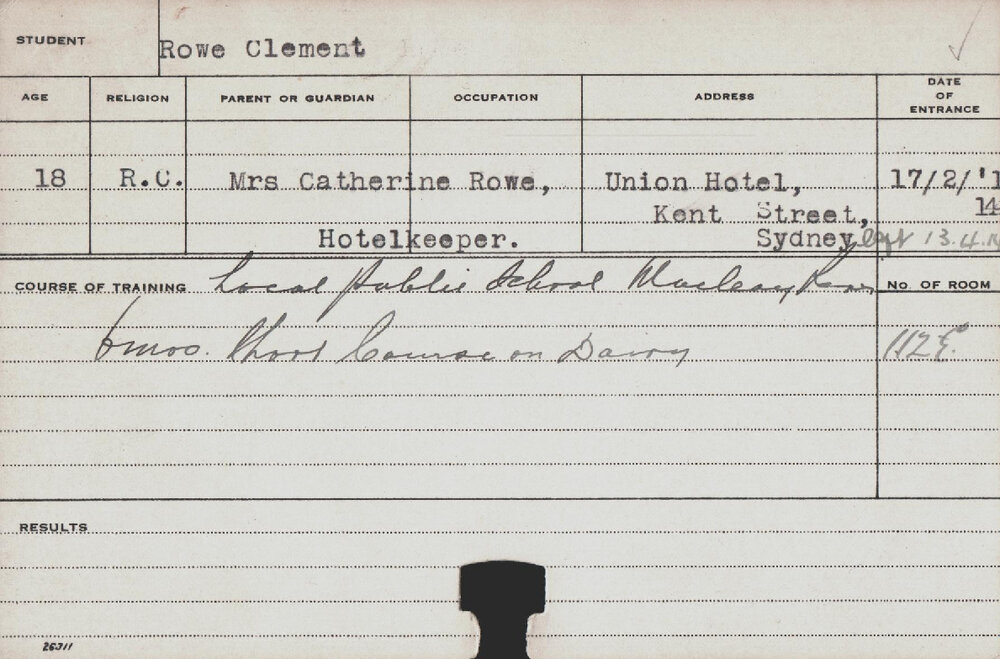 STUDENT Rowe Clement
AGE RELIGION PARENT OR GUARDIAN OCCUPATION ADDRESS DATE OF ENTRANCE
18 R.C. Mrs Catherine Rowe, Union Hotel, 17/2/'1
Kent Street, 14
Hotelkeeper. Sydney left 13.4.
COURSE OF TRAINING Local Public School Macleay River No. OF ROOM
6 mos. Short Course on Dairy 112 E.
RESULTS
26311